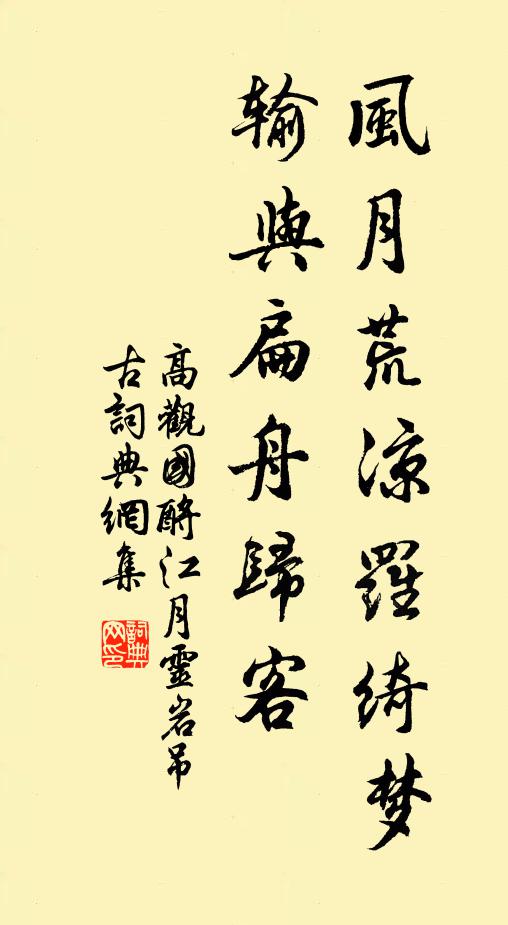 風月荒凉羅綺梦
输與扁舟歸客
高觀國酹江月靈岩吊
古詞典網集
詞典网印